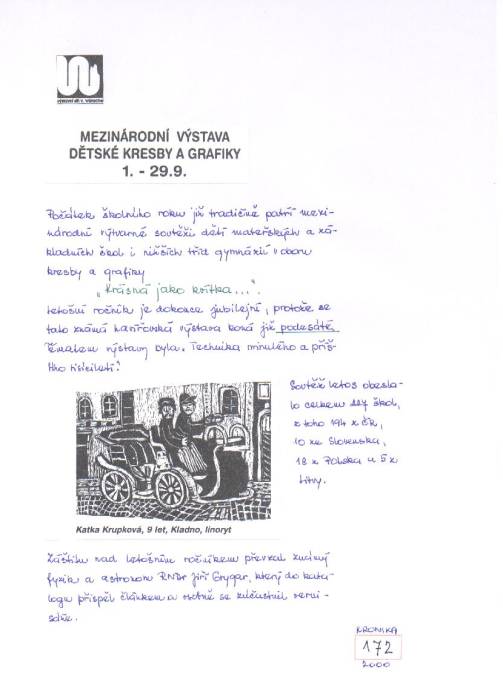 MEZINÁRODNÍ VÝSTAVA
DĚTSKÉ KRESBY A GRAFIKY
1. - 29.9.
Počátek školního roku již tradičně patří mezi-
národní výtvarné soutěži dětí mateřských a zá-
kladních škol i nižších tříd gymnázií v oboru
kresby a grafiky
"Krásná jako kvítka...".
Letošní ročník je dokonce jubilejní, protože se
tato známá výstava koná již podesáté.
Tématem výstavy byla: Technika minulého a příš-
tího tisíciletí.
Soutěž letos obesla-
lo celkem 227 škol,
z toho 194 z ČR,
10 ze Slovenska,
18 z Polska a 5 z
Litvy.
Katka Krupková, 9 let, Kladno, linoryt
Záštitu nad letošním ročníkem převzal známý
fyzik a astronom RNDr Jiří Grygar, který do kata-
logu přispěl článkem a osobně se zúčastnil verni-
sáže.
KRONIKA
172
2000